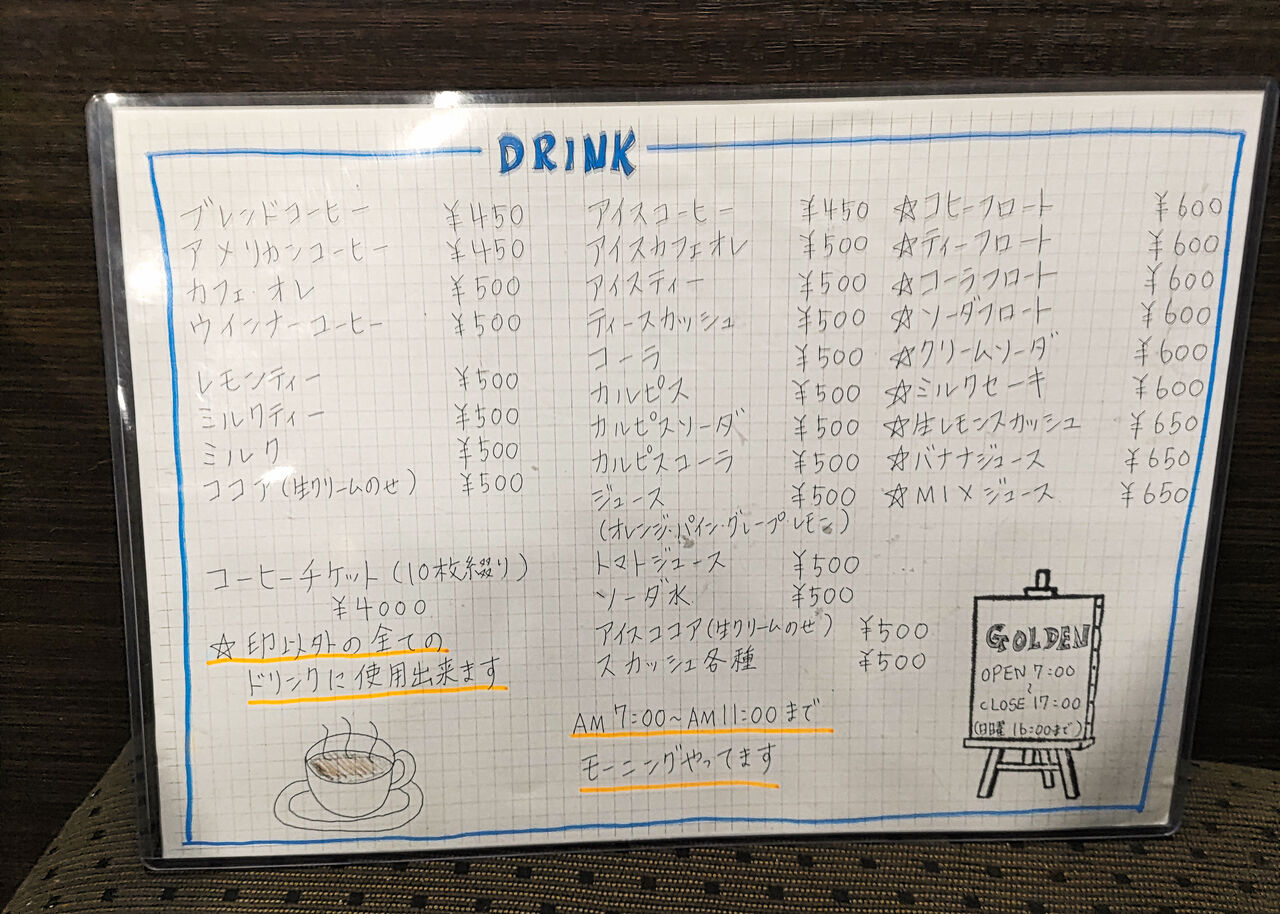 DRINK
ブレンドコーヒー ¥450
アメリカンコーヒー ¥450
カフェ・オレ ¥500
ウインナーコーヒー ¥500
レモンティー ¥500
ミルクティー ¥500
ミルク ¥500
ココア(生クリームのせ) ¥500
コーヒーチケット(10枚綴り)
¥4000
☆印以外の全ての
ドリンクに使用出来ます
アイスコーヒー ¥450
アイスカフェオレ ¥500
アイスティー ¥500
ティースカッシュ ¥500
コーラ ¥500
カルピス ¥500
カルピスソーダ ¥500
カルピスコーラ ¥500
ジュース ¥500
(オレンジ・パイン・グレープ・レモン)
トマトジュース ¥500
ソーダ水 ¥500
アイスココア(生クリームのせ) ¥500
スカッシュ各種 ¥500
AM 7:00~AM11:00まで
モーニングやってます
☆コヒーフロート ¥600
☆ティーフロート ¥600
☆コーラフロート ¥600
☆ソーダフロート ¥600
☆クリームソーダ ¥600
☆ミルクセーキ ¥600
☆生レモンスカッシュ ¥650
☆バナナジュース ¥650
☆MIXジュース ¥650
GOLDEN
OPEN 7:00
~
CLOSE 17:00
(日曜 16:00まで)